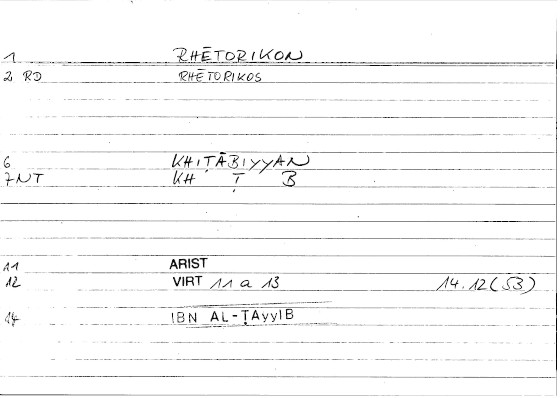 1 RHĒTORIKON
2 RD RHĒTORIKOS
6 KHIṬĀBIYYAN
7NT KH Ṭ B
11 ARIST
12 VIRT 11 a 13 14.12(53)
14 IBN AL-ṬAyyIB